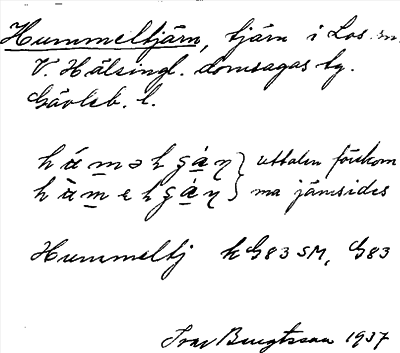 Hummeltjärn, tjärn i Los sn.
V. Hälsingl. domsagas tg.
Gävleb. l.
uttalen förekom
ma jämsides
Hummeltj kG83 SM, G83
Ivar Bengtsson 1937